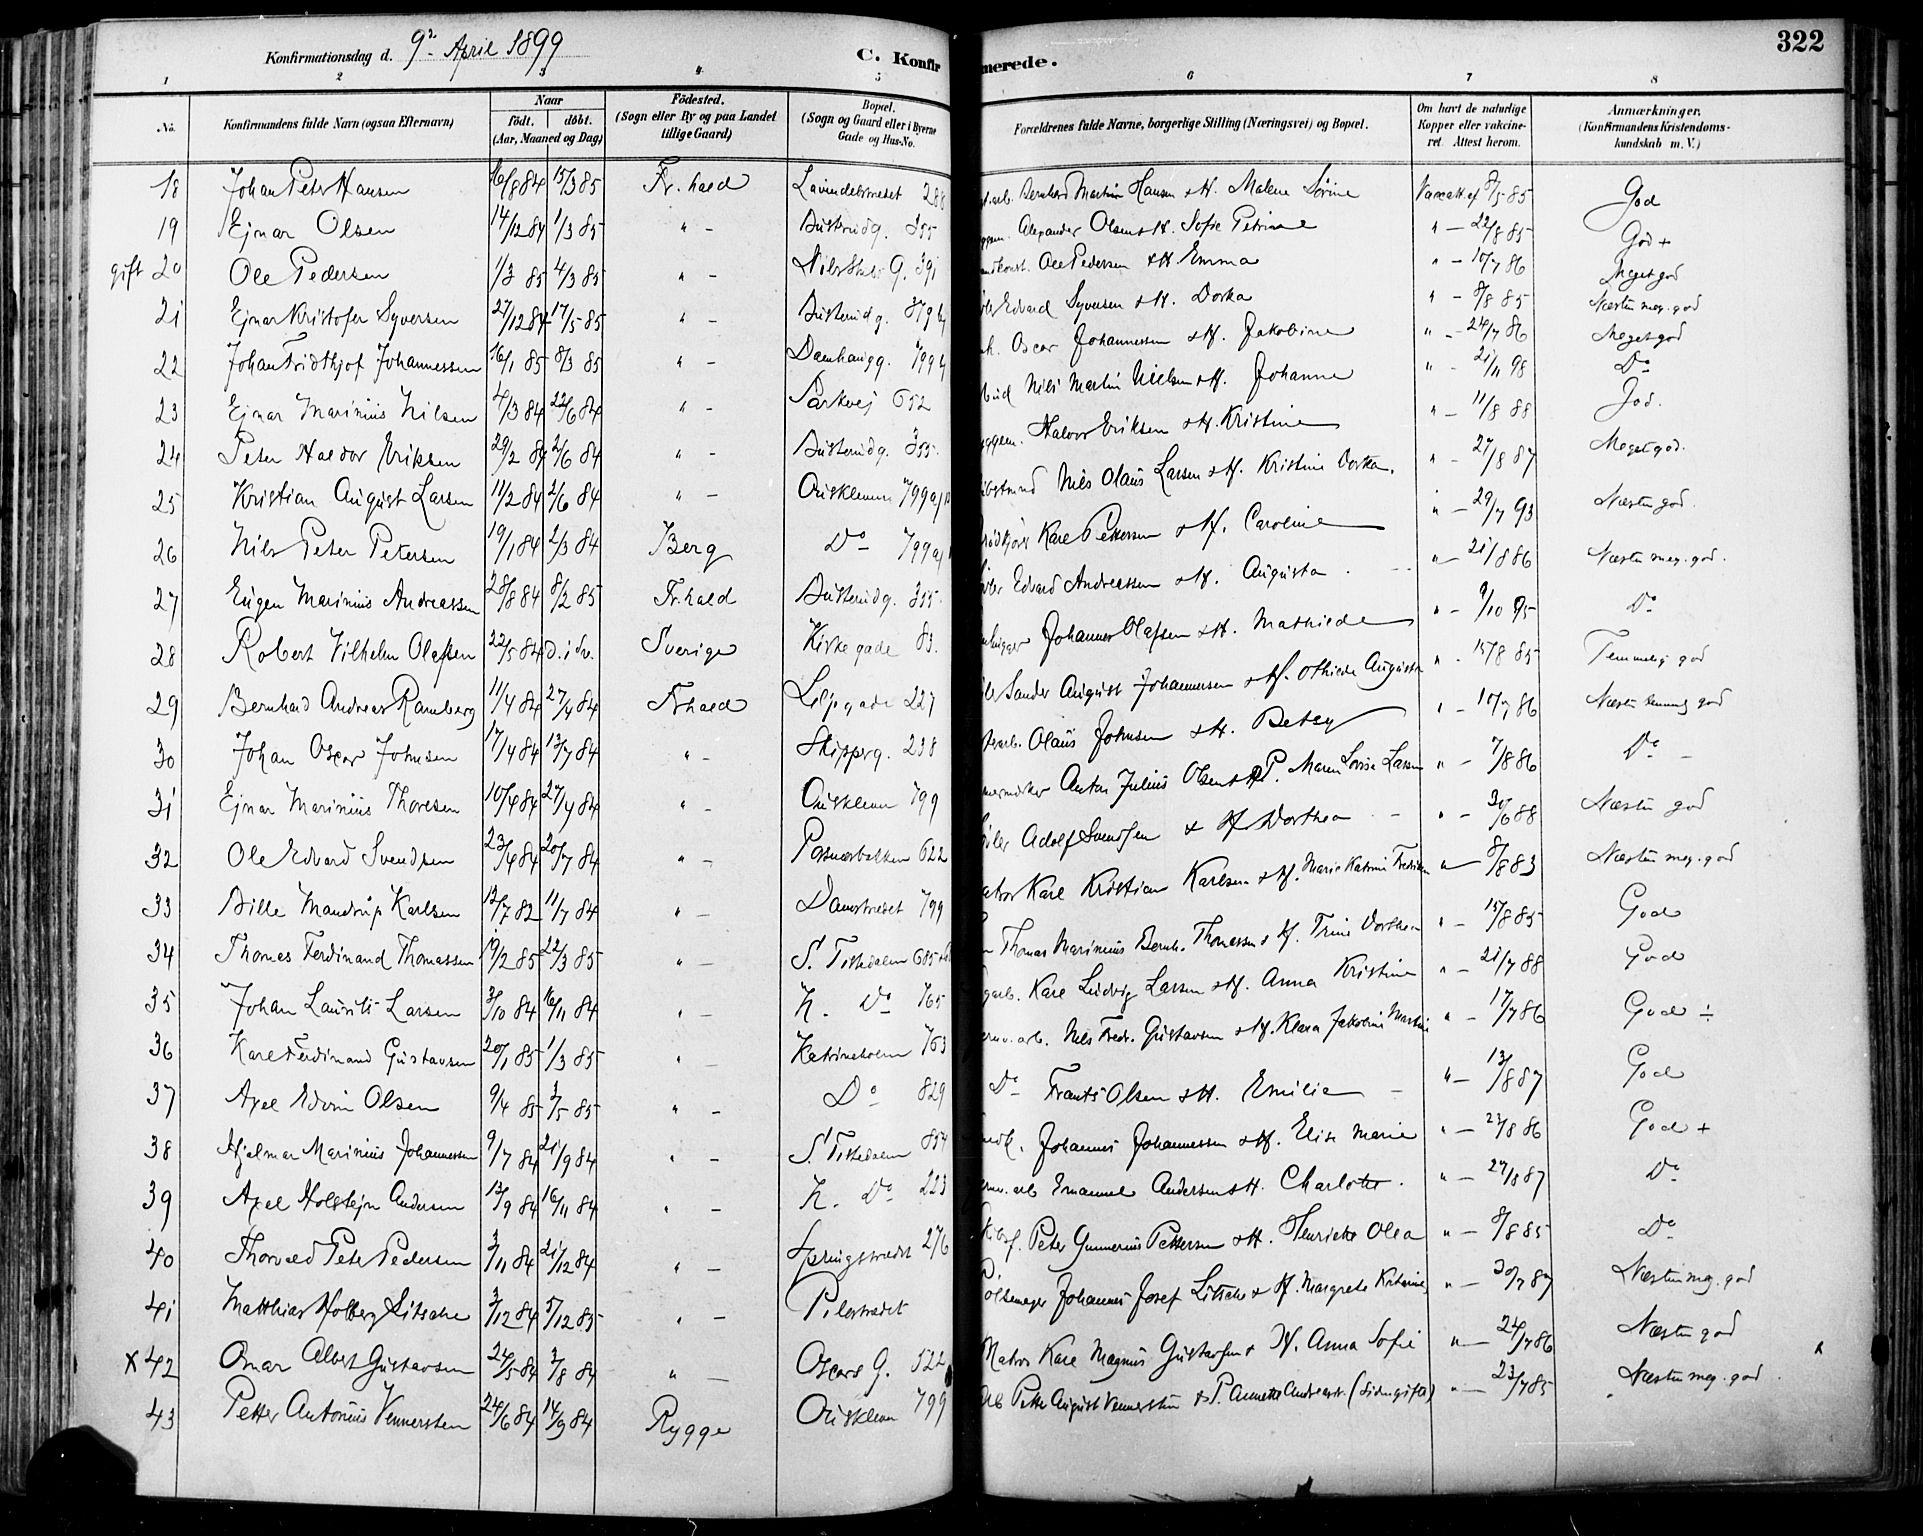 322
Konfirmationsdag d. 9de April 1899
C. Konfir merede.
1 2 3 4 5 6 7 8
No. Konfirmandens fulde Navn (ogsaa Efternavn) Naar födt. döbt. (Aar, Maaned og Dag) Födested. (Sogn eller By og paa Landet tillige Gaard) Bopæl. (Sogn og Gaard eller i Byerne Gade og Hus-No. Forældrenes fulde Navne, borgerlige Stilling (Næringsvei) og Bopæl. Om havt de naturlige Kopper eller vakcineret. Attest herom. Anmærkninger. (Konfirmandens Kristendomskundskab m. V.)
18 Johan Peter Hansen 16/8 84 15/3 85 Fr.hald Lavendelstrædet 288 Bernhard Martin Hansen & H. Malene Sørine Vaccatt. af 8/5 85 God
19 Ejnar Olsen 14/12 84 1/3 85 " - Busterudg. 355 Alexander Olsen & H. Sofie Petrine " - 22/8 85 God +
gift 20 Ole Pedersen 1/3 85 4/3 85 " - Nils Stubs G. 391 Ole Pedersen & H. Emma " - 10/7 86 Meget god
21 Ejnar Kristofer Syversen 27/12 84 17/5 85 " - Busterudg. Edvard Syversen & H. Dorka " - 8/8 85 Næsten meg. god
22 Johan Fridthjof Johannessen 16/1 85 8/3 85 " - Damhaugg. 799 Oscar Johannessen & H. Jakobine " - 24/7 86 Meget god
23 Ejnar Marinius Nilsen 4/3 84 22/6 84 " - Parkvej 652 Nils Martin Nielsen & H. Johanne " - 21/11 98 Do
24 Peter Haldor Eriksen 29/2 84 2/6 84 " - Busterudg. 355. Halvor Eriksen & H. Kristine " - 11/8 88 God.
25 Kristian August Larsen 11/2 84 2/6 84 " - Ouskleven 799 Nils Olaus Larsen & H. Kristine Dorka. " - 27/8 87 Meget god.
26 Nils Peter Petersen 19/1 84 2/3 84 Berg Do - 799 Karl Pettersen & H. Caroline " - 29/7 93 Næsten god.
27 Eugen Marinius Andreassen 28/8 84 8/2 85 Fr.hald Busterudg. 355. Edvard Andreassen & H. Augusta " - 21/8 86 Næsten meg. god.
28 Robert Vilhelm Olafsen 22/5 84 D. i Sv. Sverige Kirkegade 83. Johannes Olafsen & H. Mathilde " - 9/10 95 Do
29 Bernhard Andreas Ramberg 11/4 84 27/4 84 Frhald Liljegade 227 Sander August Johannesen & H. Othilde Augusta " - 15/8 85 Temmelig god
30 Johan Oscar Johnsen 17/4 84 13/7 84 " - Skipperg. 238 Olaus Johnsen & H. Betsy " - 10/7 86 Næsten temmelig god
31 Ejnar Marinius Thoresen 10/4 84 27/4 84 " - Ouskleven 799 Anton Julius Olsen & P. Maren Lovise Larsen " - 7/8 86 Do -
32 Ole Edvard Svendsen 23/4 84 20/7 84 " - Posnærbakken 622 Adolf Svendsen & H Dorthea " - 30/6 88 Næsten god
33 Bille Mandrup Karlsen 12/7 82 11/7 84 " - Damstrædet 799 Karl Kristian Karlsen & H. Marie Katrine " - 8/8 83 Næsten meg. god
34 Thomas Ferdinand Thomassen 19/2 85 22/3 85 " - S. Tistedalen Thomas Marinius Bernh. Thomassen & H. Trine Dorthea " - 15/8 85 God
35 Johan Laurits Larsen 3/10 84 16/11 84 " - N. Do 765 Karl Ludvig Larsen & H. Anna Kristine " - 21/7 88 God
36 Karl Ferdinand Gustavsen 20/1 85 1/3 85 " - Katrineholm 763 Nils Fredr. Gustavsen & H. Klara Jakobine " - 17/7 86 God ÷
37 Axel Edvin Olsen 9/4 85 3/5 85 " - Do - 829 Do Frants Olsen & H. Emilie " - 13/8 87 God
38 Hjalmar Marinius Johannessen 9/7 84 21/9 84 " - S. Tistedalen 854 Johannes Johannessen & H. Elise Marie " - 23/8 86 God +
39 Axel Holstejn Andersen 13/9 84 16/11 84 " - N. Do 223 Emanuel Andersen & H. Charlotte. " - 27/8 87 Do
40 Thorvald Peter Pedersen 3/11 84 21/12 84 " - Springstrædet 276 Peter Gunnerius Pettersen & H. Henriette Olea " - 8/8 85 Do
41 Matthias Holberg Litsche 3/12 84 5/12 85 " - Pilestrædet Pölsemager Johannes Josef Litsche & H. Margrete Katarine " - 30/7 87 Næsten meg. god
x 42 Omar Albert Gustavsen 24/5 84 3/8 84 " - Oscars G. 522 Matros Karl Magnus Gustavsen & H. Anna Sofie " - 24/7 86 Næsten god
43 Petter Antonius Vennersten 24/6 84 14/9 84 Rygge Ouskleven 799 Arb Petter August Vennersten & P. Annette Andreasd. (siden gifte) " - 23/7 85 Næsten meg. god